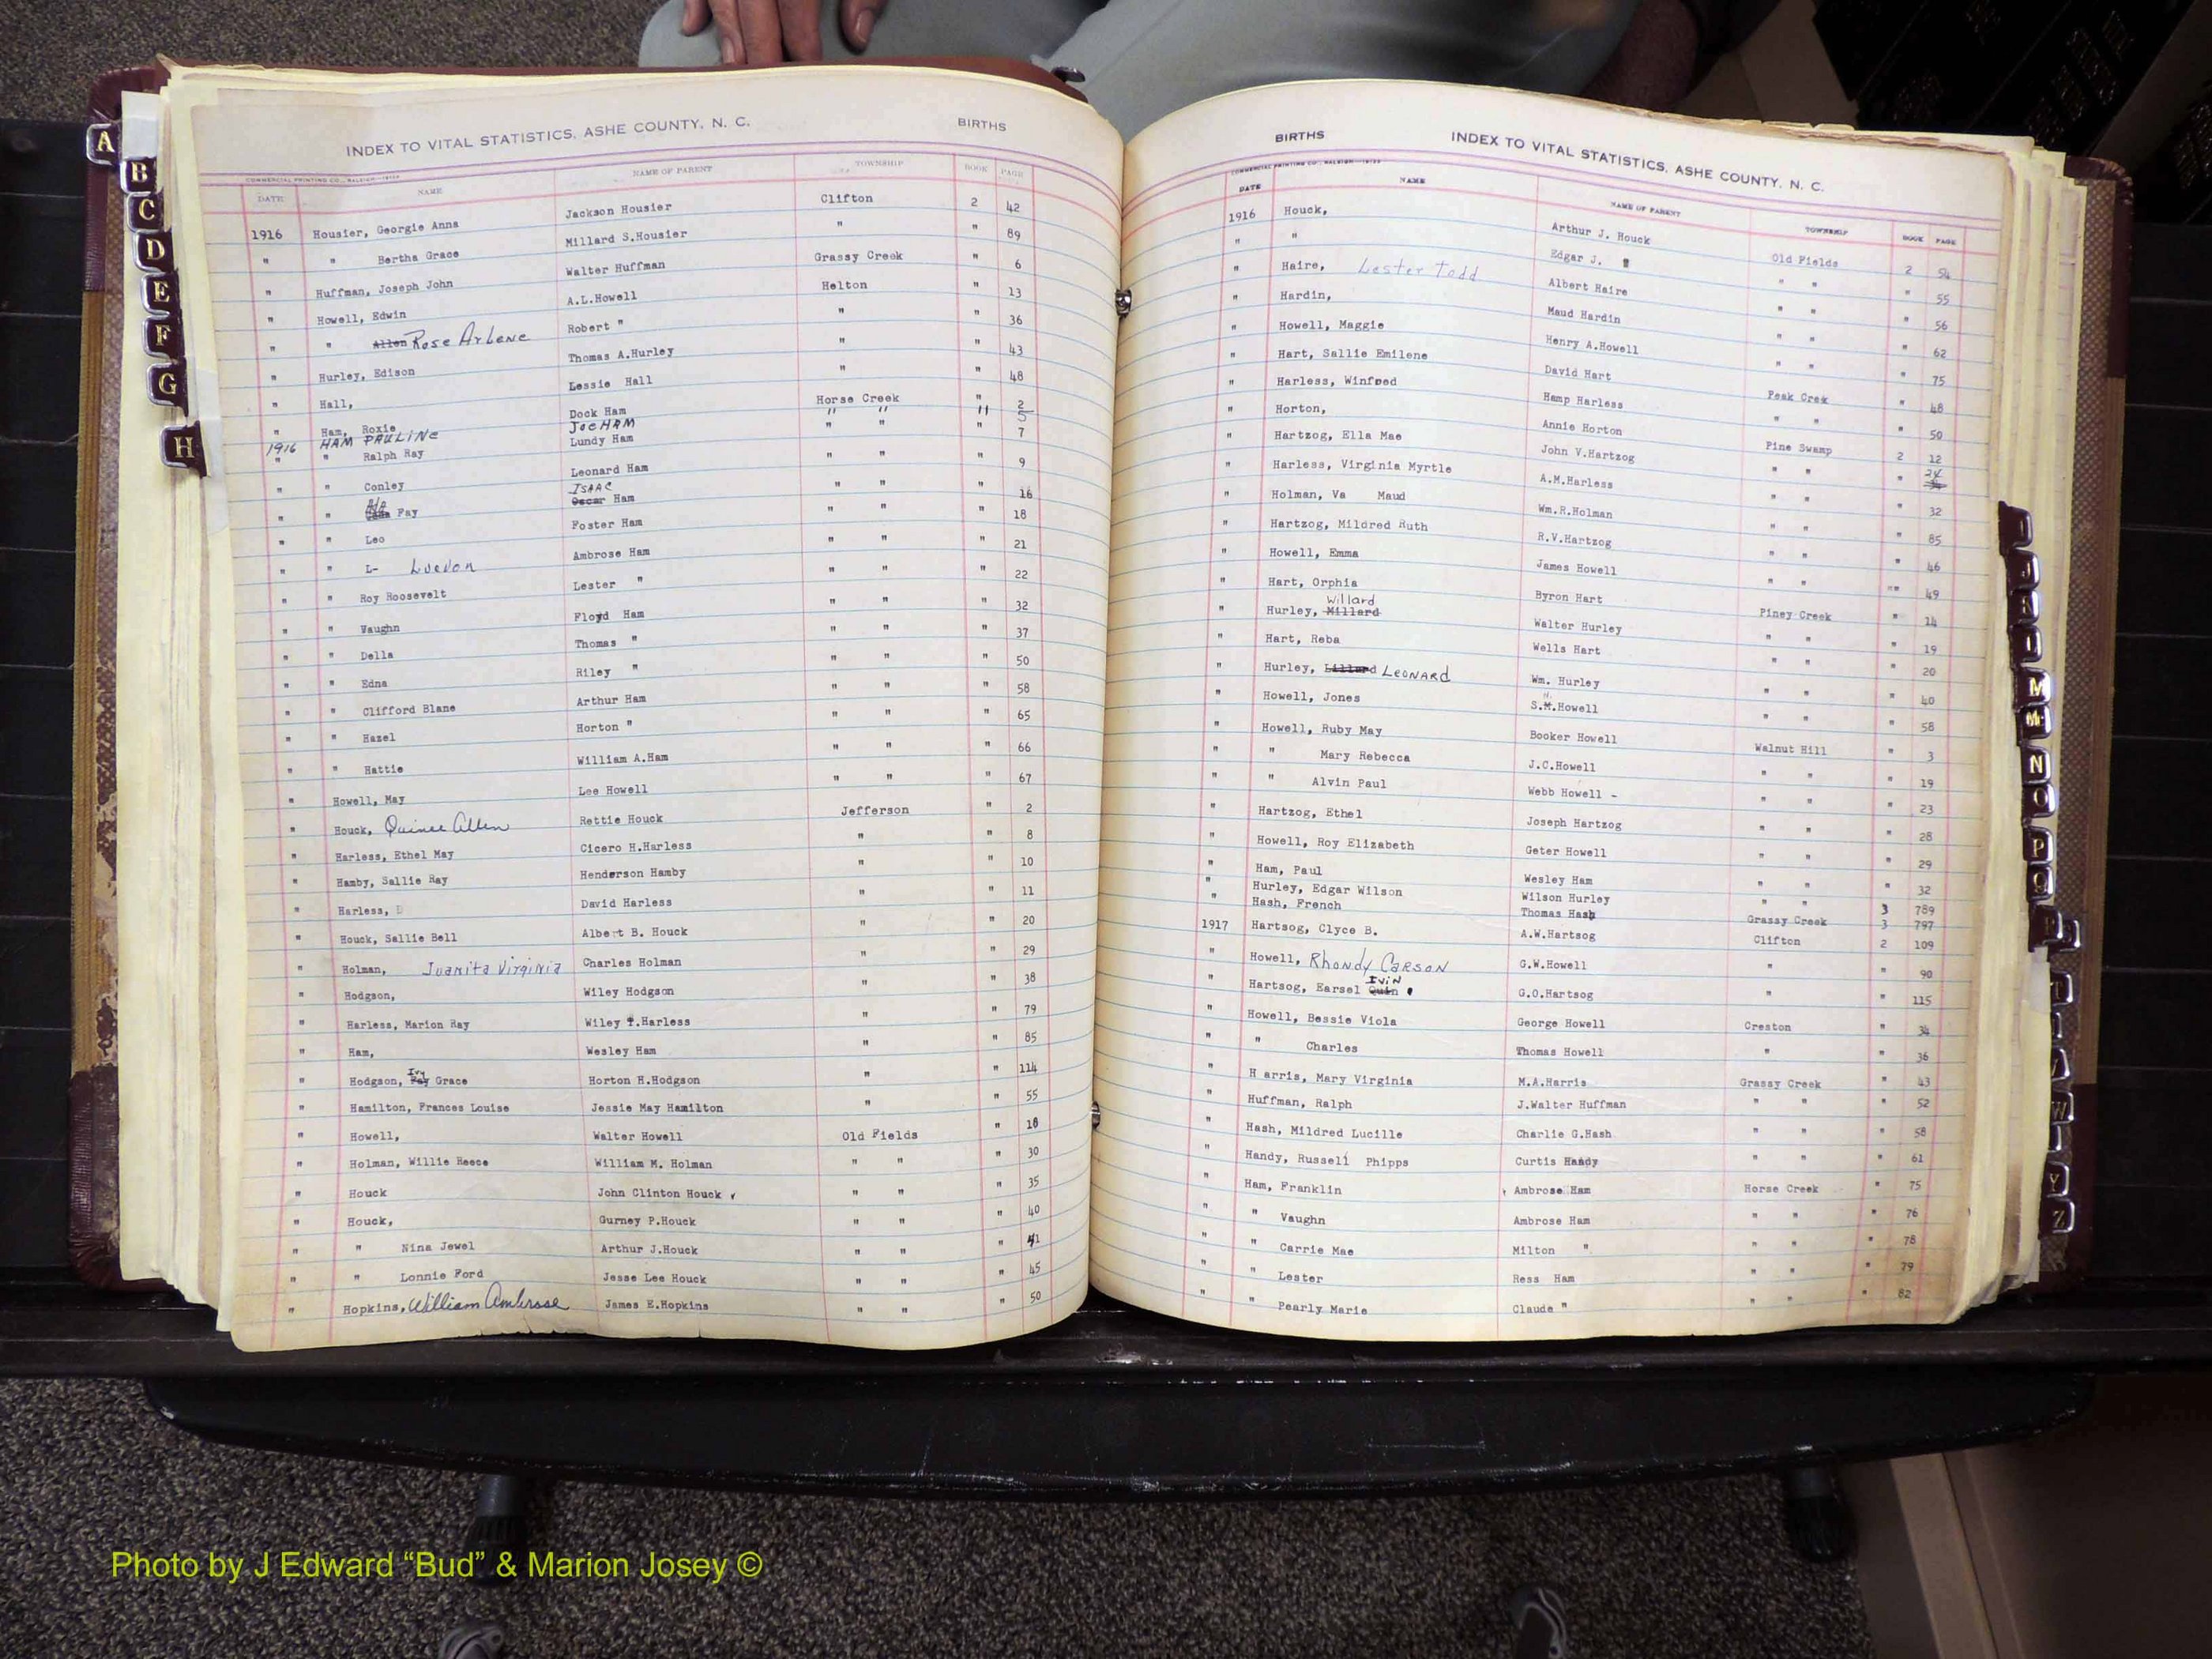 A
B
C
D
E
F
G
H
INDEX TO VITAL STATISTICS, ASHE COUNTY, N. C. BIRTHS
COMMERCIAL PRINTING CO., RALEIGH
DATE NAME NAME OF PARENT TOWNSHIP BOOK PAGE
1916 Housier, Georgie Anna Jackson Housier Clifton 2 42
" " Bertha Grace Millard S.Housier " " 89
" Huffman, Joseph John Walter Huffman Grassy Creek " 6
" Howell, Edwin A.L.Howell Helton " 13
" " Allen Rose Arlene Robert " " " 36
" Hurley, Edison Thomas A.Hurley " " 43
" Hall, Lessie Hall " " 48
" Ham, Roxie Dock Ham Horse Creek " 2
1916 HAM PAULINE JOE HAM " " 11 5
" " Ralph Ray Lundy Ham " " " 7
" " Conley Leonard Ham " " " 9
" " Ada Fay ISAAC Oscar Ham " " " 16
" " Leo Foster Ham " " " 18
" " L- Luevon Ambrose Ham " " " 21
" " Roy Roosevelt Lester " " " " 22
" " Vaughn Floyd Ham " " " 32
" " Della Thomas " " " " 37
" " Edna Riley " " " " 50
" " Clifford Blane Arthur Ham " " " 58
" " Hazel Horton " " " " 65
" " Hattie William A.Ham " " " 66
" Howell, May Lee Howell " " " 67
" Houck, Quince Allen Rettie Houck Jefferson " 2
" Harless, Ethel May Cicero H.Harless " " 8
" Hamby, Sallie Ray Henderson Hamby " " 10
" Harless, D David Harless " " 11
" Houck, Sallie Bell Albert B. Houck " " 20
" Holman, Juanita Virginia Charles Holman " " 29
" Hodgson, Wiley Hodgson " " 38
" Harless, Marion Ray Wiley T.Harless " " 79
" Ham, Wesley Ham " " 85
" Hodgson, Ivy Fay Grace Horton H.Hodgson " " 114
" Hamilton, Frances Louise Jessie May Hamilton " " 55
" Howell, Walter Howell Old Fields " 18
" Holman, Willie Reece William M. Holman " " " 30
" Houck John Clinton Houck " " " 35
" Houck, Gurney P.Houck " " " 40
" " Nina Jewel Arthur J.Houck " " " 41
" " Lonnie Ford Jesse Lee Houck " " " 45
" Hopkins, William Ambrose James E.Hopkins " " " 50
BIRTHS INDEX TO VITAL STATISTICS, ASHE COUNTY, N. C.
COMMERCIAL PRINTING CO., RALEIGH
DATE NAME NAME OF PARENT TOWNSHIP BOOK PAGE
1916 Houck, Arthur J. Houck Old Fields 2 54
" " Edgar J. " " " " 55
" Haire, Lester Todd Albert Haire " " " 56
" Hardin, Maud Hardin " " " 62
" Howell, Maggie Henry A.Howell " " " 75
" Hart, Sallie Emilene David Hart Peak Crek " 48
" Harless, Winfred Hamp Harless " " " 50
" Horton, Annie Horton Pine Swamp 2 12
" Hartzog, Ella Mae John V.Hartzog " " " 24
" Harless, Virginia Myrtle A.M.Harless " " " 32
" Holman, Va Maud Wm.R.Holman " " " 85
" Hartzog, Mildred Ruth R.V.Hartzog " " " 46
" Howell, Emma James Howell " " "" 49
" Hart, Orphia Byron Hart Piney Creek " 14
" Hurley, Millard Willard Walter Hurley " " 19
" Hart, Reba Wells Hart " " 20
" Hurley, Lillard LEONARD Wm. Hurley " " " 40
" Howell, Jones S.M.Howell " " " 58
" Howell, Ruby May Booker Howell Walnut Hill " 3
" " Mary Rebecca J.C.Howell " " " 19
" " Alvin Paul Webb Howell - " " " 23
" Hartzog, Ethel Joseph Hartzog " " " 28
" Howell, Roy Elizabeth Geter Howell " " " 29
" Ham, Paul Wesley Ham " " " 32
" Hurley, Edgar Wilson Wilson Hurley " " 3 789
" Hash, French Thomas Hash Grassy Creek 3 797
1917 Hartsog, Clyce B. A.W.Hartsog Clifton 2 109
" Howell, Rhondy Carson G.W.Howell " " 90
" Hartsog, Earsel Quin Ivin G.O.Hartsog " " 115
" Howell, Bessie Viola George Howell Creston " 34
" " Charles Thomas Howell " " 36
" H arris, Mary Virginia M.A.Harris Grassy Creek " 43
" Huffman, Ralph J.Walter Huffman " " " 52
" Hash, Mildred Lucille Charlie G.Hash " " " 58
" Handy, Russell Phipps Curtis Handy " " " 61
" Ham, Franklin Ambrose Ham Horse Creek " 75
" " Vaughn Ambrose Ham " " " 76
" " Carrie Mae Milton " " " " 78
" " Lester Ress Ham " " " 79
" " Pearly Marie Claude " " " " 82
M
Mc
N
O
P
Q
R
T
W
Y
Z
Photo by J Edward “Bud” & Marion Josey ©